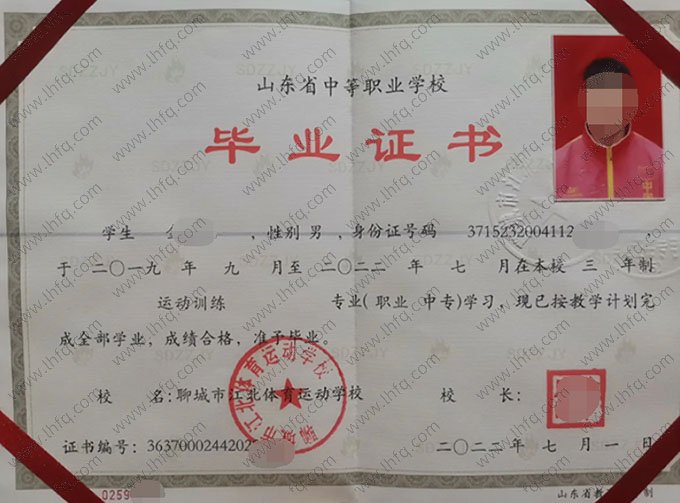 山东省中等职业学校
毕业证书
学生 ，性别 男 ，身份证号码 3715232004112 ，
于 二〇一九 年 九 月至 二〇二二 年 七 月在本校 三 年制
运动训练 专业（ 职业 中专）学习，现已按教学计划完
成全部学业，成绩合格，准予毕业。
校 名：聊城市江北体育运动学校 校 长：
证书编号：363700024420 二〇二二 年 七 月 一 日
0259 山东省教 制
市江北体育运动学校
SDZZJY
www.lhfq.com